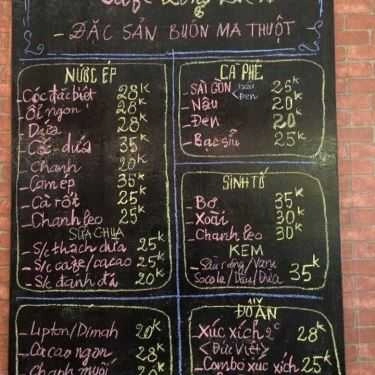 - ĐẶC SẢN BUÔN MA THUỘT
NƯỚC ÉP
- Cóc đặc biệt 28K
- Ổi ngon 28K
- Dứa 28K
- Cóc - dứa 35K
- Chanh 20K
- Cam ép 35K
- Cà rốt 25K
- Chanh leo 25K
SỮA CHUA
- S/c thạch dừa 25K
- S/c cafe/cacao 25K
- S/c đánh đá 20K
- Lipton/Dimah 20K
- Cacao ngon 28K
- Chanh muối
CÀ PHÊ
- SÀI GÒN < nâu đen 25K
- Nâu 20K
- Đen 20K
- Bạc sỉu 25K
SINH TỐ
- Bơ 35K
- Xoài 30K
- Chanh leo 30K
KEM
- Sầu riêng/Vani
Socola/Dâu/Dừa 35K
ĐỒ ĂN
- Xúc xích 28K
<Đức Việt>
- Combo xúc xích 25K